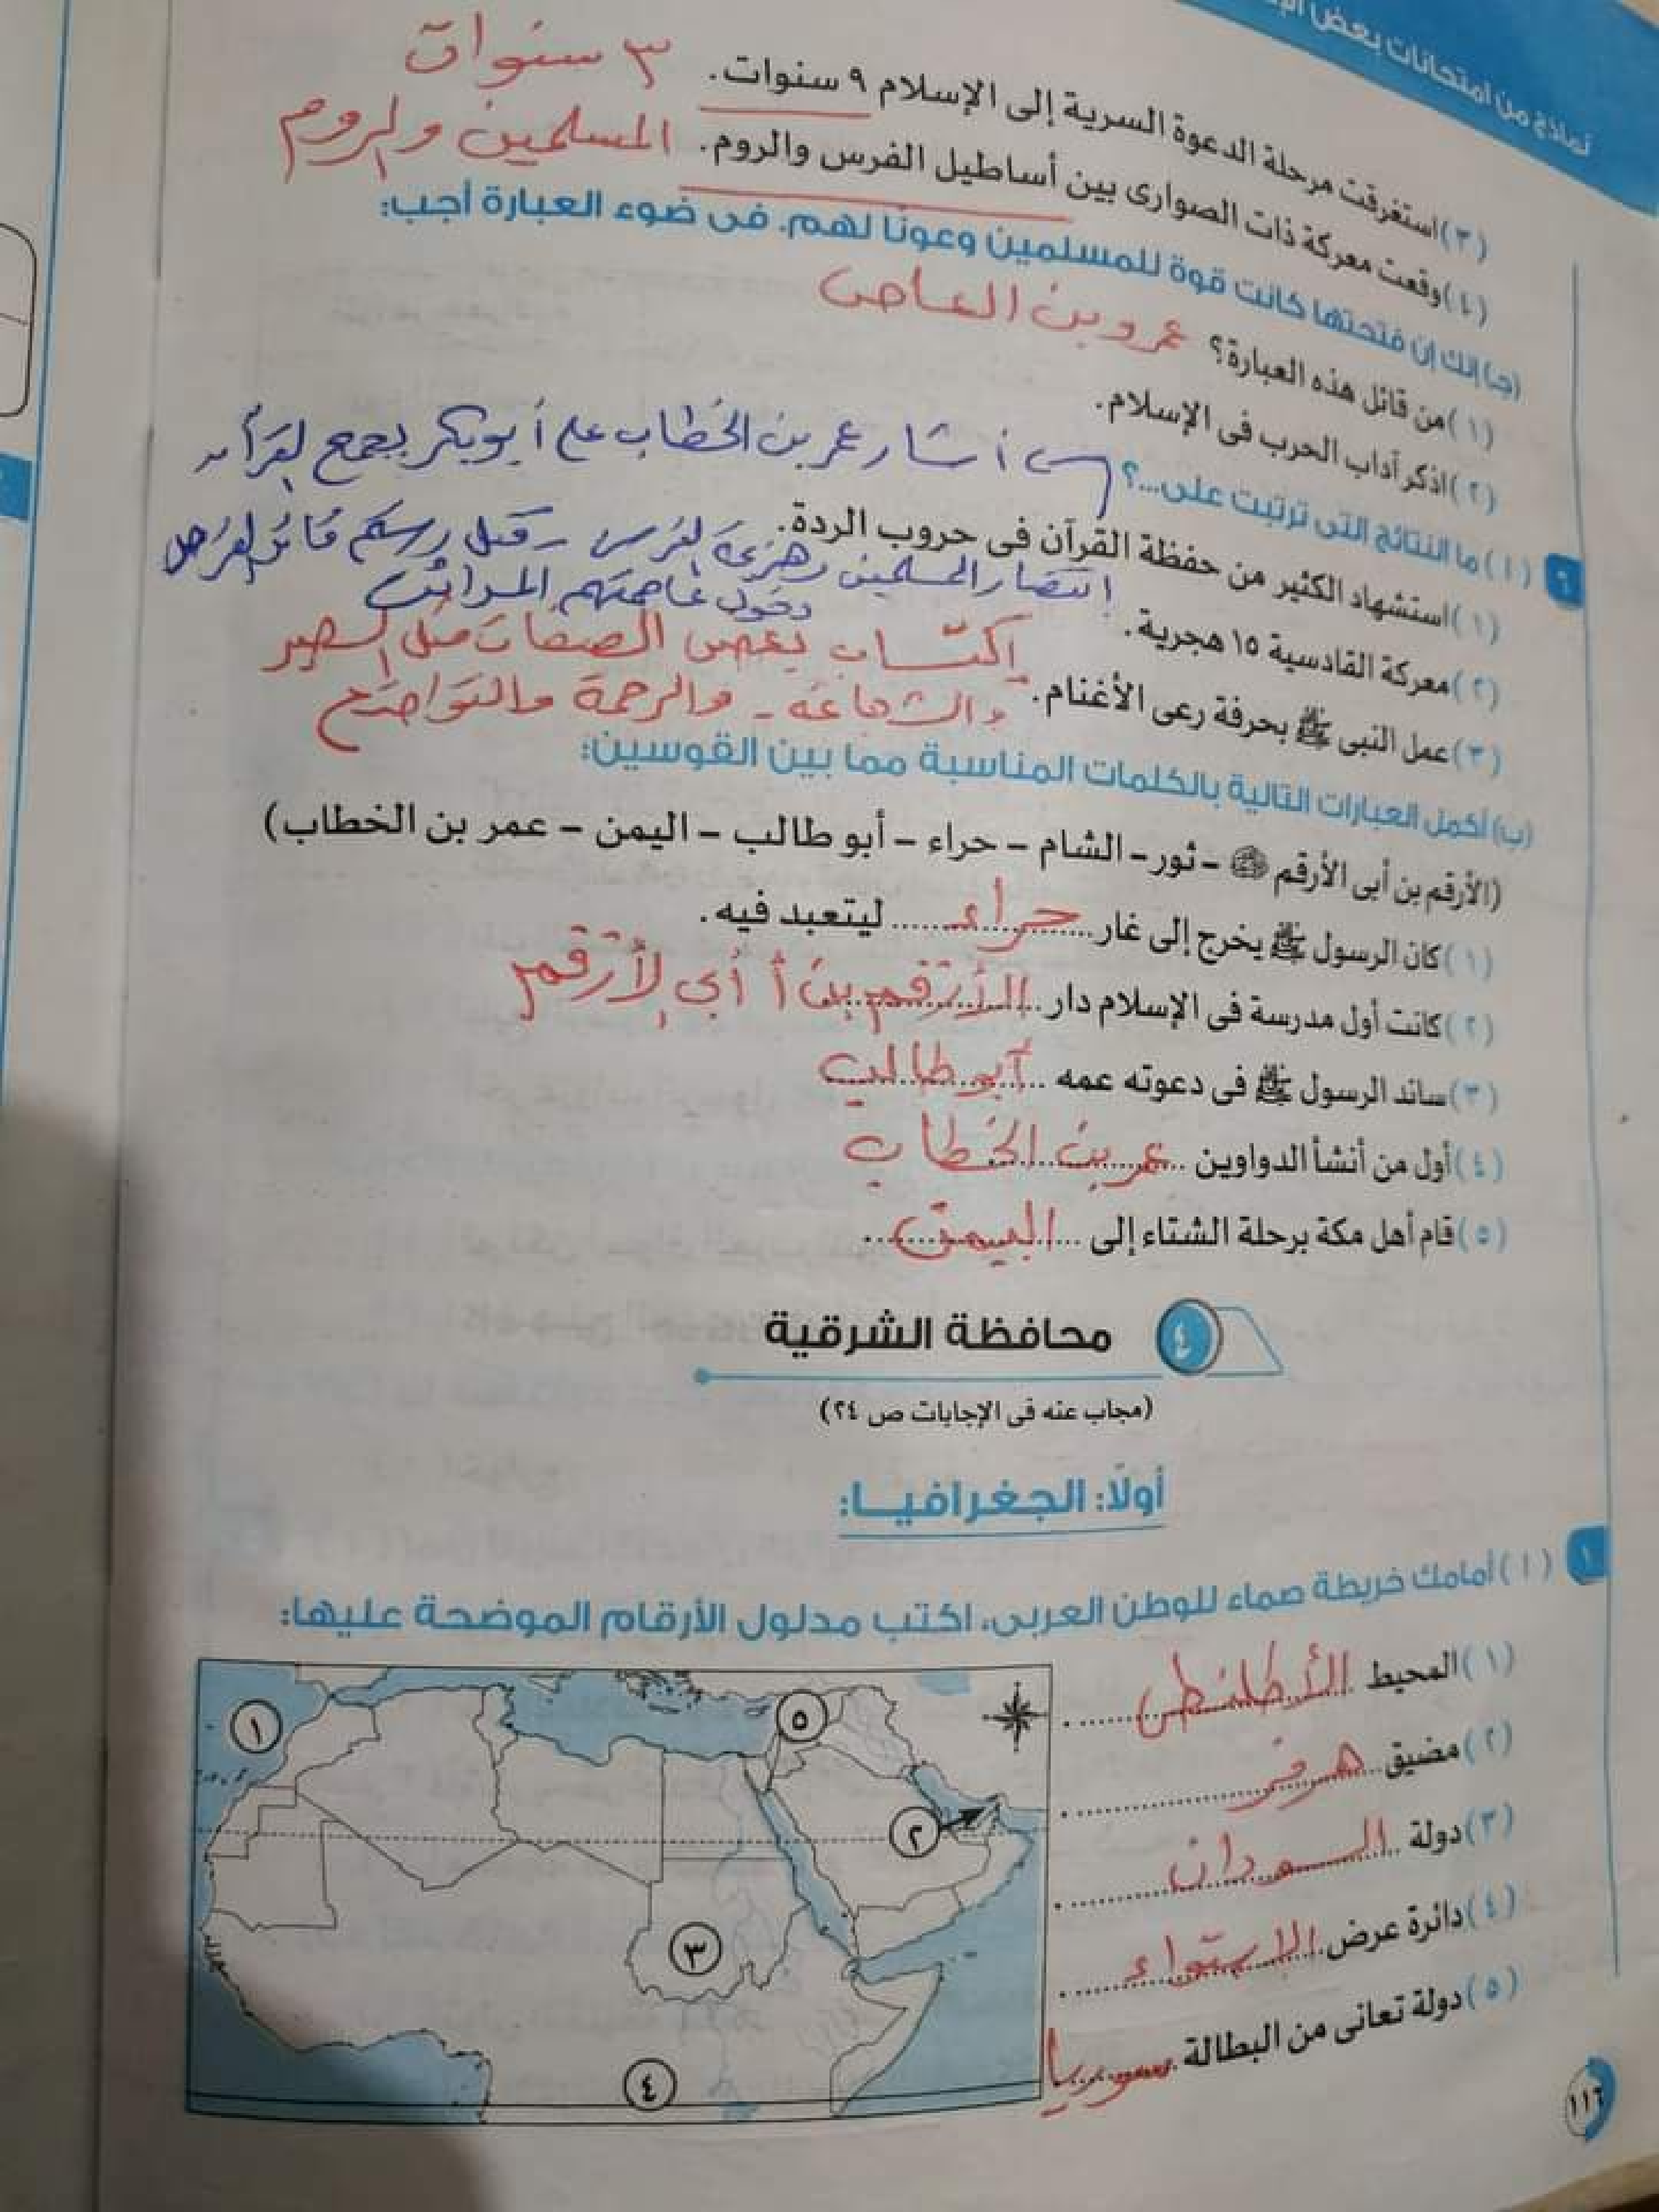 نماذج من امتحانات بعض
(٣) استغرقت مرحلة الدعوة السرية إلى الإسلام ٩ سنوات. ٣ سنوات
(٤) وقعت معركة ذات الصوارى بين أساطيل الفرس والروم. المسلمين والروم
(جـ) إنك إن فتحتها كانت قوة للمسلمين وعونًا لهم. فى ضوء العبارة أجب:
(١) من قائل هذه العبارة؟ عمرو بن العاص
(٢) اذكر آداب الحرب فى الإسلام.
٦ (أ) ما النتائج التى ترتبت على...؟
أشار عمر بن الخطاب على أبو بكر بجمع القرآن
(١) استشهاد الكثير من حفظة القرآن فى حروب الردة.
انتصار المسلمين وهزيمة الفرس وقتل رستم قائد الفرس
(٢) معركة القادسية ١٥ هجرية. دخول عاصمتهم المدائن
(٣) عمل النبى ﷺ بحرفة رعى الأغنام. إكتساب بعض الصفات مثل الصبر
والشجاعة - والرحمة والتواضع
(ب) أكمل العبارات التالية بالكلمات المناسبة مما بين القوسين:
(الأرقم بن أبى الأرقم - ثور - الشام - حراء - أبو طالب - اليمن - عمر بن الخطاب)
(١) كان الرسول ﷺ يخرج إلى غار حراء ليتعبد فيه.
(٢) كانت أول مدرسة فى الإسلام دار الأرقم بن أ أبي الأرقم
(٣) ساند الرسول ﷺ فى دعوته عمه أبو طالب
(٤) أول من أنشأ الدواوين عمر بن الخطاب
(٥) قام أهل مكة برحلة الشتاء إلى اليمن
٤ محافظة الشرقية
(مجاب عنه فى الإجابات ص ٢٤)
أولًا: الجغرافيا:
١ (أ) أمامك خريطة صماء للوطن العربى، اكتب مدلول الأرقام الموضحة عليها:
(١) المحيط الأطلنطى
(٢) مضيق هرمز
(٣) دولة السودان
(٤) دائرة عرض الاستواء
(٥) دولة تعانى من البطالة سوريا
١
٥
٢
٣
٤
١١٦